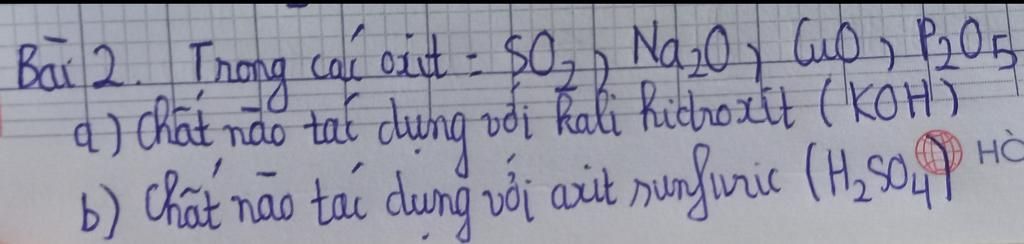 Bài 2. Trong các oxit = SO2, Na2O, CuO, P2O5
a) Chất nào tác dụng với kali hidroxit (KOH)
b) Chất nào tác dụng với axit sunfuric (H2SO4)